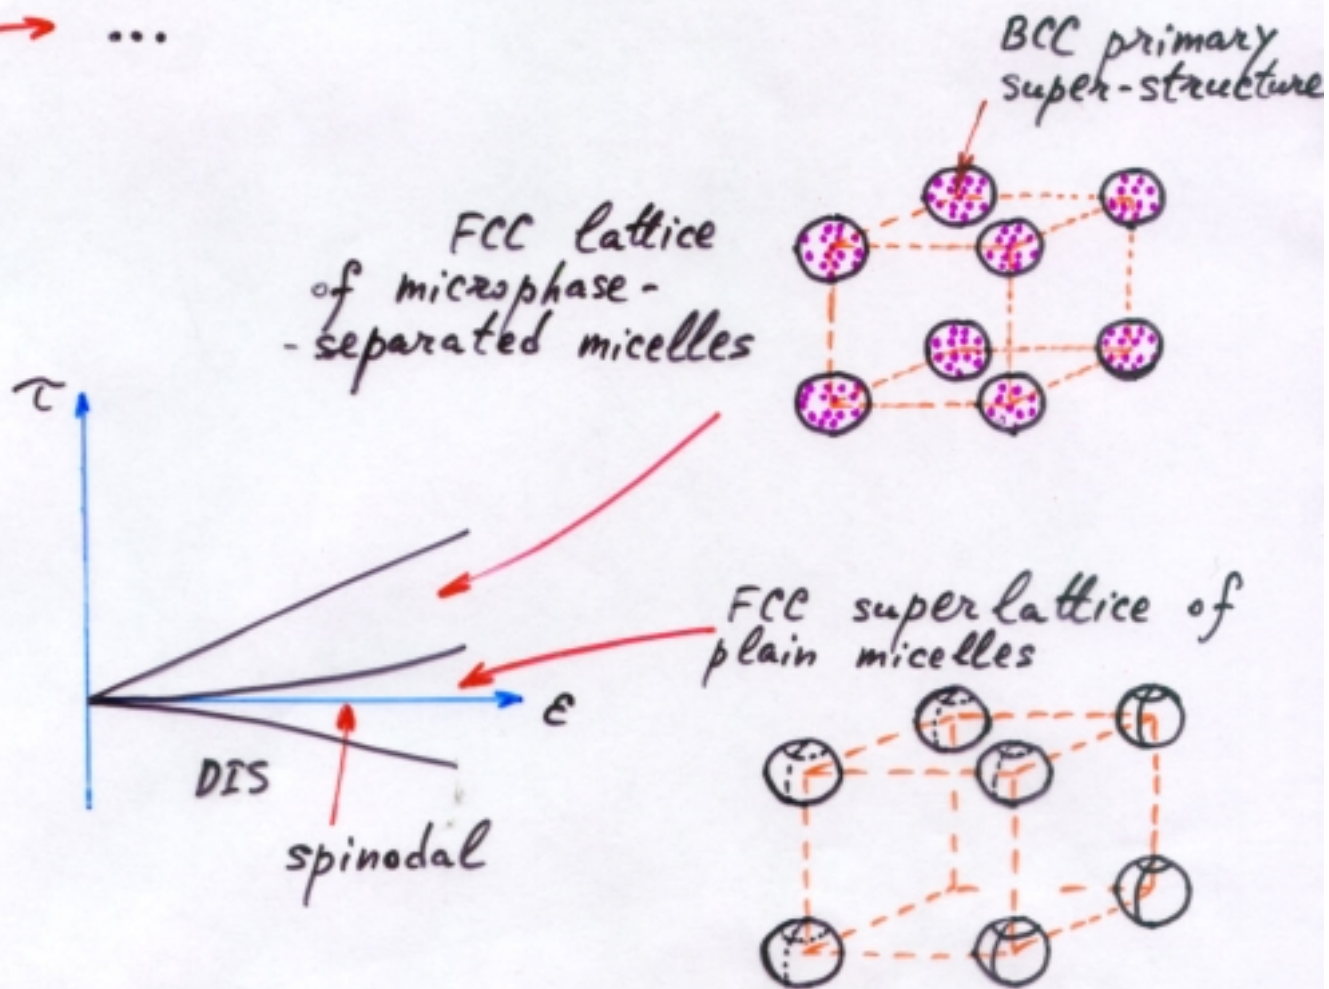 ...
BCC primary
super-structure
FCC lattice
of microphase-
-separated micelles
τ
FCC superlattice of
plain micelles
ε
DIS
spinodal